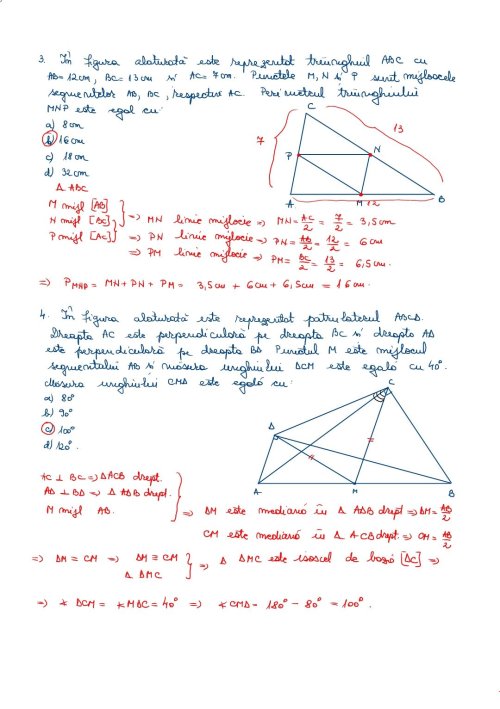 3. În figura alaturată este reprezentat triunghiul ABC cu
AB=12cm, BC=13cm si AC=7cm. Punctele M, N si P sunt mijloacele
segmentelor AB, BC, respectiv AC. Perimetrul triunghiului
MNP este egal cu:
a) 8cm
b) 16cm
c) 18cm
d) 32cm
C
7
13
P
N
A
M
12
B
Δ ABC
M mijl [AB]
N mijl [BC] => MN linie mijlocie => MN = AC/2 = 7/2 = 3,5cm
P mijl [AC] => PN linie mijlocie => PN = AB/2 = 12/2 = 6cm
=> PM linie mijlocie => PM = BC/2 = 13/2 = 6,5cm.
=> P MNP = MN + PN + PM = 3,5cm + 6cm + 6,5cm = 16cm.
4. În figura alaturată este reprezentat patrulaterul ABCD.
Dreapta AC este perpendiculară pe dreapta BC si dreapta AD
este perpendiculară pe dreapta BD. Punctul M este mijlocul
segmentului AB si măsura unghiului DCM este egală cu 40°.
Măsura unghiului CMD este egală cu:
a) 80°
b) 90°
c) 100°
d) 120°.
C
Δ
A
M
B
AC ⊥ BC => ΔACB drept.
AD ⊥ BD => Δ ADB drept.
M mijl AB.
=> DM este mediană în Δ ADB drept => DM = AB/2
CM este mediană în Δ ACB drept => CM = AB/2
=> DM = CM => DM ≡ CM
Δ DMC
=> Δ DMC este isoscel de bază [DC] =>
=> ∢ DCM = ∢ MDC = 40° => ∢ CMD = 180° - 80° = 100°.